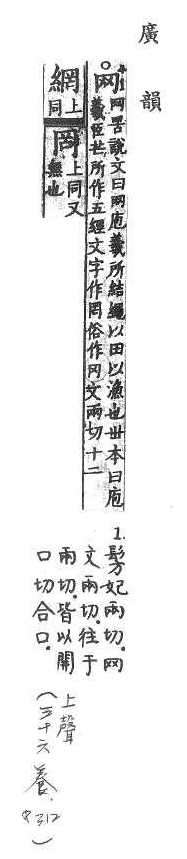 廣韻
网网罟說文曰网庖羲所結繩以田以漁也世本曰庖
羲臣芒所作五經文字作罔俗作冈文兩切十二
網上同
罔上同又無也
1.髣妃兩切.网
文兩切.往于
兩切.皆以開
口切合口.
上聲
(三十六養.
P312)